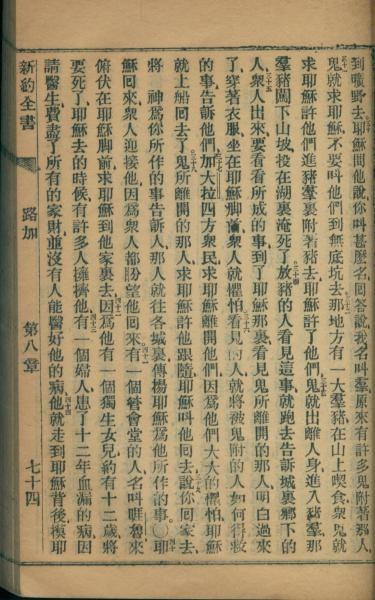 到曠野去、耶穌問他說、你叫甚麼名、回答說、我名叫羣、原來有許多鬼附著那人、
三十一鬼就求耶穌、不要叫他們到無底坑去、那地方有一大羣豬、在山上喫食、衆鬼就
求耶穌許他們進豬羣裏附著豬去、耶穌許了他們、三十三鬼就出離人身、進入豬羣、那
羣豬闖下山坡、投在湖裏淹死了、三十四放豬的人看見這事、就跑去告訴城裏鄉下的
人、三十五衆人出來要看看所成的事、到了耶穌那裏、看見鬼所離開的那人、明白過來
了、穿著衣服、坐在耶穌脚前、衆人就懼怕、三十六看見的人、就將被鬼附的人如何得救
的事、告訴他們、三十七加大拉四方衆民、求耶穌離開他們、因爲他們大大的懼怕、耶穌
就上船回去了、三十八鬼所離開的那人、求耶穌許他跟隨、耶穌叫他回去、說、三十九你回家去、
將 神爲你所作的事告訴人、那人就往各城裏傳揚耶穌爲他所作的事、〇四十耶
穌回來、衆人迎接他、因爲衆人都盼望他回來、四十一有一個管會堂的人、名叫睚魯、來
俯伏在耶穌脚前、求耶穌到他家裏去、四十二因爲他有一個獨生女兒、約有十二歲、將
要死了、耶穌去的時候、有許多人擁擠他、四十三有一個婦人、患了十二年血漏的病、因
請醫生、費盡了所有的家財、並沒有人能醫好他的病、四十四他就走到耶穌背後、摸耶
新約全書 路加 第八章 七十四